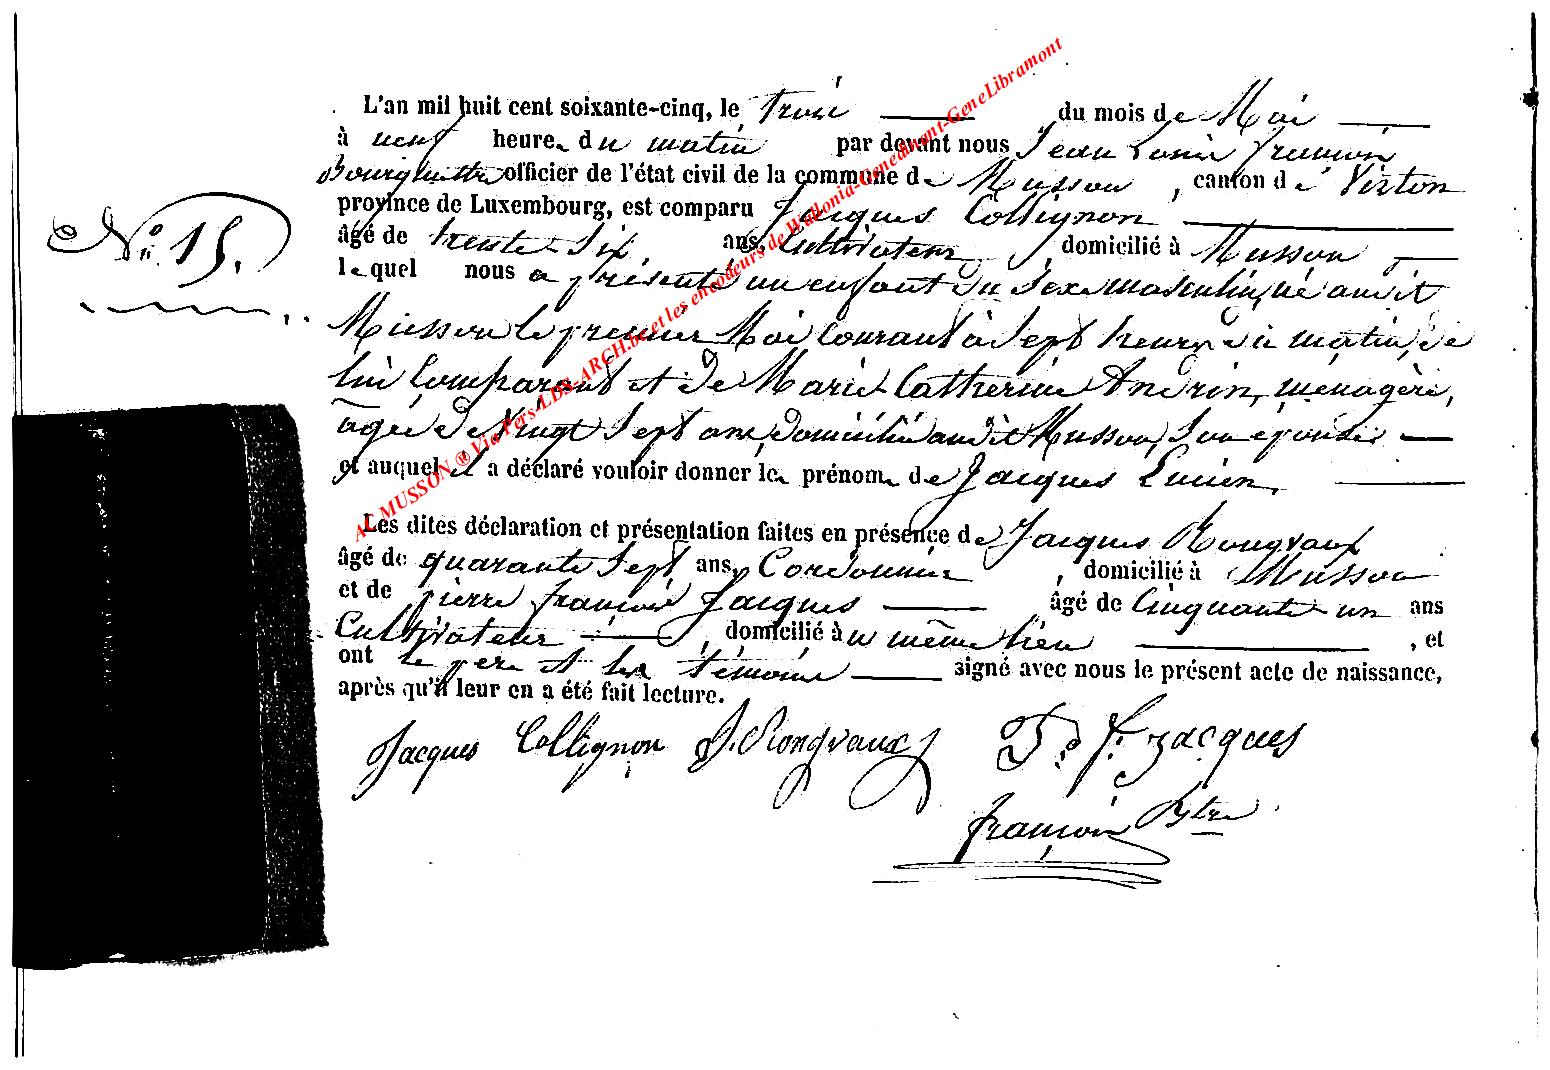 L'an mil huit cent soixante-cinq, le trois du mois de Mai
à neuf heure du matin par devant nous Jean Louis françois
officier de l'état civil de la commune de Musson, canton de Virton
Nº 15.
province de Luxembourg, est comparu Jacques Collignon
âgé de trente-six ans, Cultivateur, domicilié à Musson
lequel nous a présenté un enfant du sexe masculin, né audit
Musson le premier Mai courant à sept heures du matin, de
lui Comparant et de Marie Catherine Andrin, ménagère,
âgée de vingt sept ans, domiciliée audit Musson, son épouse
et auquel il a déclaré vouloir donner le prénom de Jacques Lucien,
Les dites déclaration et présentation faites en présence de Jacques Rongvaux
âgé de quarante sept ans, Cordonnier, domicilié à Musson
et de pierre françois Jacques âgé de Cinquante-un ans
Cultivateur, domicilié au même lieu, et
ont le père et les témoins signé avec nous le présent acte de naissance,
après qu'il leur en a été fait lecture.
Jacques Collignon J. Rongvaux P. f. Jacques
françois
AC MUSSON ® Via Pers-LBS-ARCH.be et les encodeurs de Wallonia-Genedinant-GeneLibramont